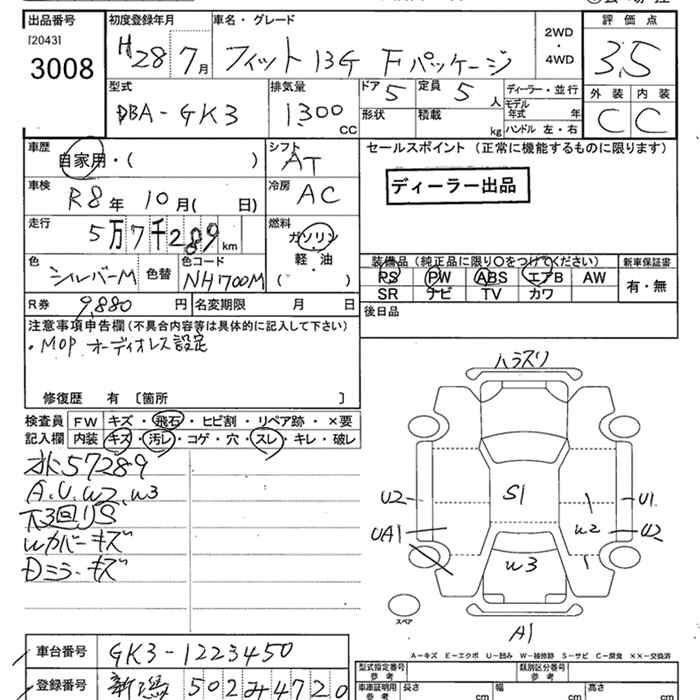 出品番号 初度登録年月 車名・グレード 評価点
[2043]
3008
H28 7月
フィット 13G Fパッケージ
2WD ・ 4WD
3.5
型式 排気量 ドア 定員 ディーラー・並行 外装 内装
DBA-GK3
1300 CC
5 5人
形状 積載 kg
モデル年式 年
ハンドル 左・右
C C
車歴 シフト セールスポイント (正常に機能するものに限ります)
自家用・( )
AT
ディーラー出品
車検 R8年 10月( 日)
冷房 AC
走行 5万7千289km
燃料
ガソリン
軽・油
( )
色 シルバーM 色替
色コード NH700M
装備品 (純正品に限り○をつけてください) 新車保証書
PS PW ABS エアB AW
SR ナビ TV カワ
有・無
R券 9,880円 名変期限 月 日
後日品
注意事項申告欄 (不具合内容等は具体的に記入して下さい)
・MOP オーディオレス設定
修復歴 有 [箇所 ]
検査員 FW キズ・飛石・ヒビ割・リペア跡・×要
記入欄 内装 キズ・汚レ・コゲ・穴・スレ・キレ・破レ
水57289
A.U.W2.W3
下3回りS
Wカバーキズ
Dミラーキズ
ハラスリ
S1
U2 U1
UA1 W2 U2
W3
スペア
A1
A-キズ E-エクボ U-凹み W-補修跡 S-サビ C-腐食 XX-交換済
車台番号 GK3-1223450
登録番号 新潟 502み4720
型式指定番号 参考
類別区分番号 参考
車庫証明用 参考 長さ cm 幅 cm 高さ cm